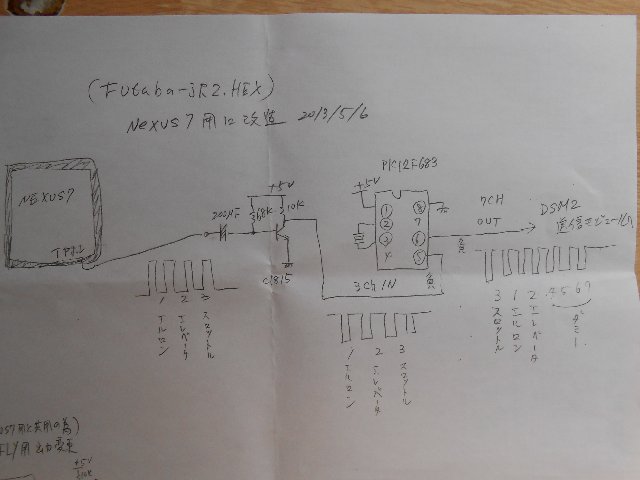 (Futaba-JR2.HEX)
NEXUS7用に改造 2013/5/6
NEXUS7
+5V
68K
10K
C1815
PIC12F683
+5V
1
2
3
4
8
7
6
5
3Ch IN
負
7CH
OUT
負
DSM2
送信モジュールへ
1 2 3
エルロン
エレベータ
スロットル
1 2 3
エルロン
エレベータ
スロットル
3 1 2 4 5 6 7
スロットル
エルロン
エレベータ
ダミー
用と共用の為)
FLY用出力変更
+5V
10K